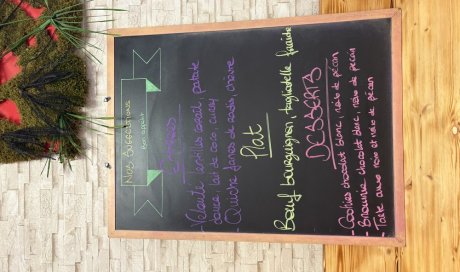 Nos Suggestions
Bon appétit
Entrées
- Velouté lentilles corail, patate
douce, lait de coco, curry
- Quiche fanes de radis, chèvre
Plat
Bœuf bourguignon, tagliatelle fraiche
DESSERTS
- Cookies chocolat blanc, noix de pécan
- Brownie chocolat blanc, noix de pécan
- Tarte aux noix et noix de pécan